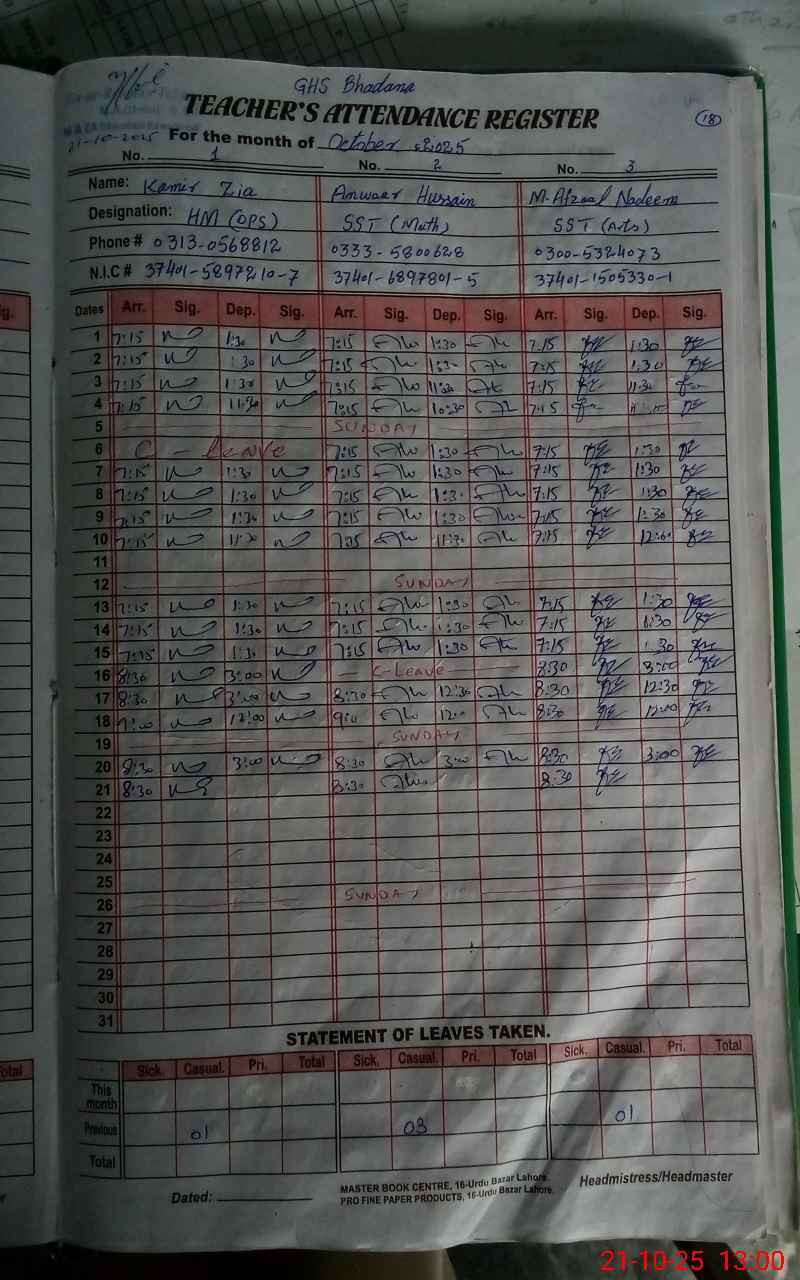 GHS Bhadana
TEACHER'S ATTENDANCE REGISTER
18
21-10-2025 For the month of October 2025
No. 1 No. 2 No. 3
Name: Kamir Zia Anwaar Hussain M. Afzaal Nadeem
Designation: HM (OPS) SST (Math) SST (Arts)
Phone # 0313-0568812 0333-5800628 0300-5324073
N.I.C # 37401-5897210-7 37401-6897801-5 37401-1505330-1
Dates Arr. Sig. Dep. Sig. Arr. Sig. Dep. Sig. Arr. Sig. Dep. Sig.
1 7:15 1:30 7:15 1:30 7:15 1:30
2 7:15 1:30 7:15 1:30 7:15 1:30
3 7:15 11:30 7:15 11:30 7:15 11:30
4 7:15 11:30 7:15 10:30 7:15
5 SUNDAY
6 C - Leave 7:15 1:30 7:15 1:30
7 7:15 1:30 7:15 1:30 7:15 1:30
8 7:15 1:30 7:15 1:30 7:15 1:30
9 7:15 1:30 7:15 1:30 7:15 1:30
10 7:15 11:30 7:15 11:30 7:15 12:00
11
12 SUNDAY
13 7:15 1:30 7:15 1:30 7:15 1:30
14 7:15 1:30 7:15 1:30 7:15 1:30
15 7:15 1:30 7:15 1:30 7:15 1:30
16 8:30 3:00 C-Leave 8:30 3:00
17 8:30 3:00 8:30 12:30 8:30 12:30
18 9:00 12:00 9:0 12:00 8:30 12:00
19 SUNDAY
20 8:30 3:00 8:30 3:00 8:30 3:00
21 8:30 8:30 8:30
22
23
24
25
26 SUNDAY
27
28
29
30
31
STATEMENT OF LEAVES TAKEN.
Sick. Casual. Pri. Total Sick. Casual. Pri. Total Sick. Casual. Pri. Total
This month
Previous 01 03 01
Total
Dated:
MASTER BOOK CENTRE, 16-Urdu Bazar Lahore.
PRO FINE PAPER PRODUCTS, 16-Urdu Bazar Lahore.
Headmistress/Headmaster
21-10-25 13:00